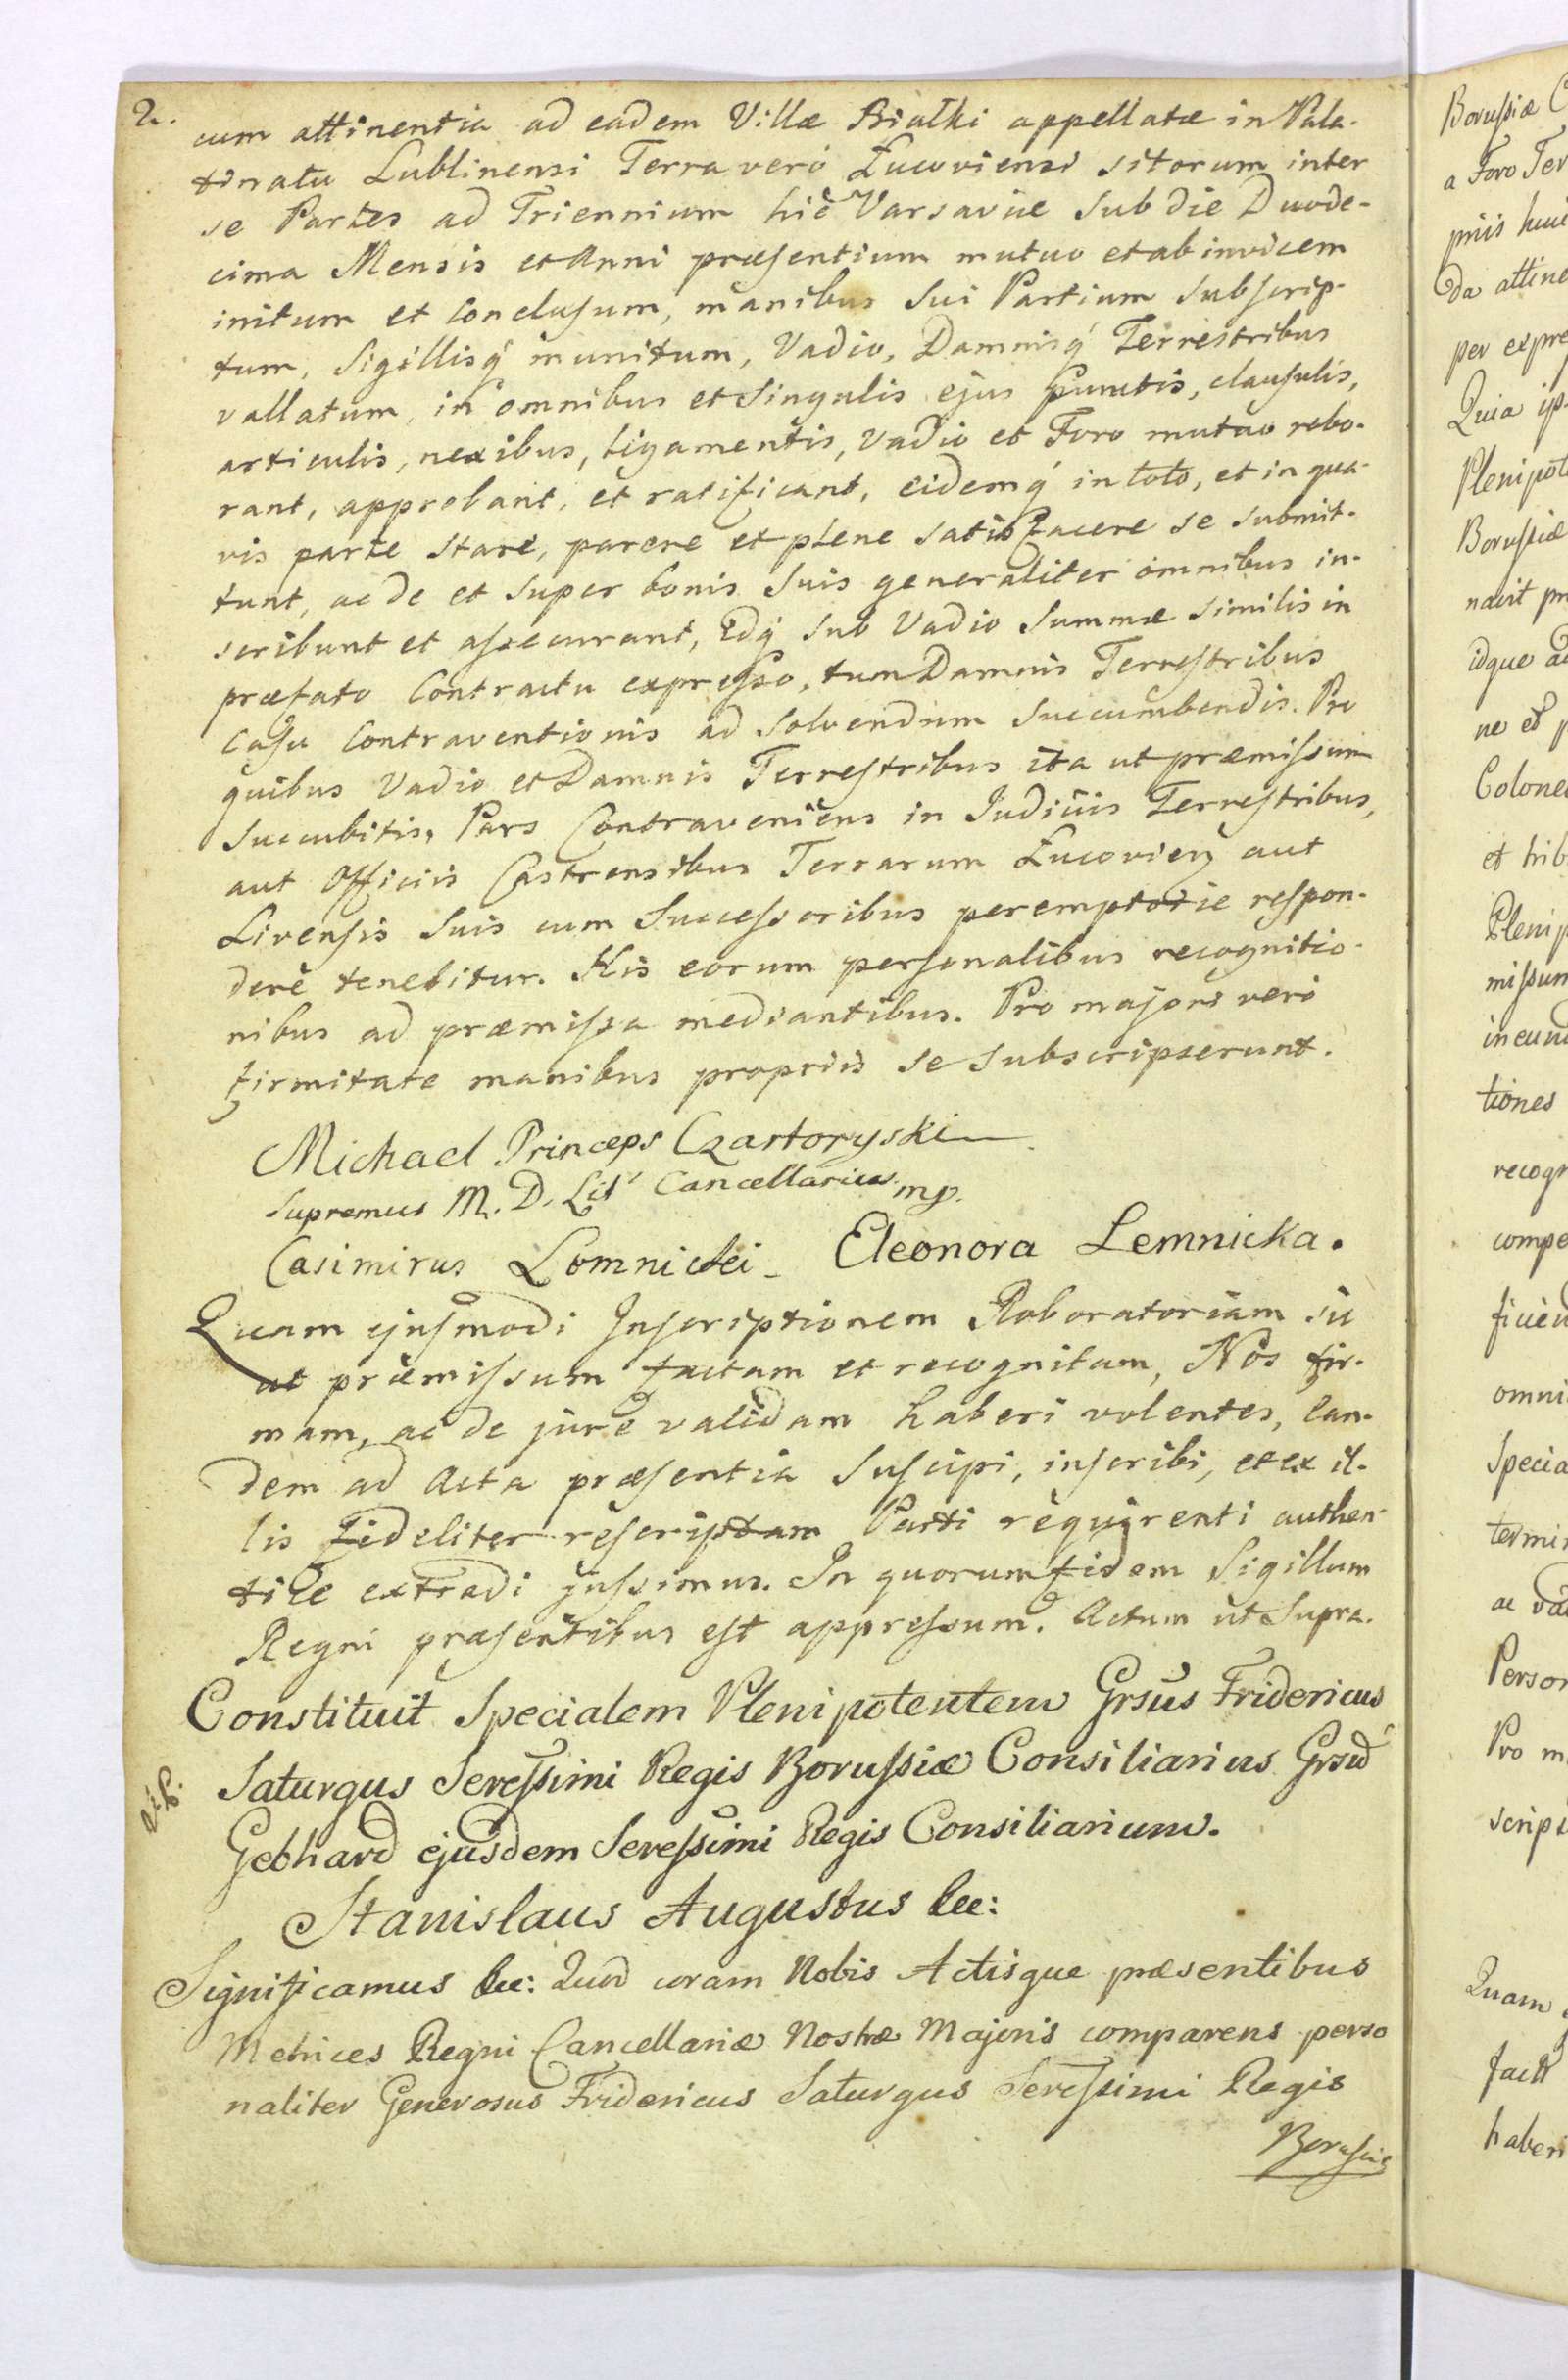 2.
cum attinentia ad eadem Villæ Białki appellatæ in Pala-
tinatu Lublinensi Terra verò Lucoviensi sitorum inter
se Partes ad Triennium hic Varsaviæ sub die Duode-
cima Mensis et Anni præsentium mutuo et ab invicem
initum et conclusum, manibus sui Partium subscrip-
tum, Sigillisq́ munitum, Vadio, Damnisq́ Terrestribus
vallatum, in omnibus et singulis ejus punctis, clausulis,
articulis, nexibus, ligamentis, vadio et Foro mutuo robo-
rant, approbant, et ratificant, eidemq́ in toto, et in qua-
vis parte stare, parere et plene satisfacere se submit-
tunt, ac de et super bonis suis generaliter omnibus in-
scribunt et assecurant, Idq́ sub Vadio summæ similis in
præfato Contractu expresso, tum Damnis Terrestribus
casu Contraventionis ad solvendum succumbendis. Pro
quibus Vadio et Damnis Terrestribus ita ut præmissum
succubitis, Pars Contraveniens in Judiciis Terrestribus,
aut Officiis Castrensibus Terrarum Lucovien aut
Livensis suis cum Successoribus peremptorie respon-
dere tenebitur. His eorum personalibus recognitio-
nibus ad præmissa mediantibus. Pro majori verò
firmitate manibus propriis se subscripserunt.
Michael Princeps Czartoryski
Supremus M. D. Lit Cancellarius mp.
Casimirus Łomnicki Eleonora Lemnicka.
Quam ejusmodi Inscriptionem Roboratoriam sic
ut præmissum factam et recognitam, Nos fir-
mam, ac de jure validam haberi volentes, ean-
dem ad Acta præsentia suscipi, inscribi, et ex il-
lis fideliter rescriptam Parti requirenti authen-
tice extradi jussimus. In quorum fidem Sigillum
Regni præsentibus est appressum. Actum ut supra.
Constituit Specialem Plenipotentem Grsus Fridericus
Saturgus Seressimi Regis Borussiæ Consiliarius Grsũ
Gebhard ejusdem Seressimi Regis Consiliarium.
Stanislaus Augustus &c:
Significamus &c: Quod coram Nobis Actisque præsentibus
Metrices Regni Cancellariæ Nostræ Majoris comparens perso
naliter Generosus Fridericus Saturgus Seressimi Regis
Borussiæ
Borussiæ
a Foro Ter
priis hui
da attine
per expre
Quia ip
Plenipot
Borussiæ
navit pr
idque a
ne et p
Colone
et trib
Plenip
missum
ineund
tiones
recogn
compe
ficien
omni
specia
termin
ac va
Person
Pro m
script
Quam
fact
haberi